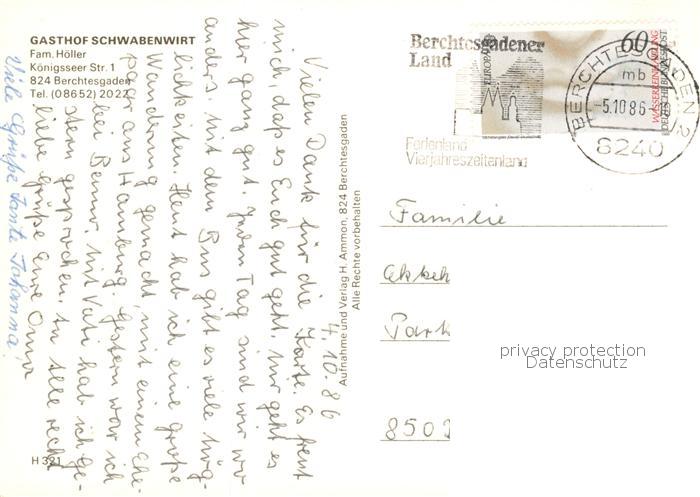 GASTHOF SCHWABENWIRT
Fam. Höller
Königsseer Str. 1
824 Berchtesgaden
Tel. (08652) 2022
4.10.86
Vielen Dank für die Karte. Es freut
mich, daß es Euch gut geht, mir geht es
hier ganz gut. Jeden Tag sind wir wo
anders, mit dem Bus gibt es viele Mög-
lichkeiten. Heut hab ich eine große
Wanderung gemacht, mit einem Ehe-
paar aus Hamburg. Gestern war ich
bei Benno, mit Vati hab ich ge-
stern gesprochen. An alle recht
liebe Grüße Eure Oma
Viele Grüße Tante Johanna.
H 321
Aufnahme und Verlag H. Ammon, 824 Berchtesgaden
Alle Rechte vorbehalten
Berchtesgadener
Land
Ferienland
Vierjahreszeitenland
EUROPA
60
WASSERREINHALTUNG
DEUTSCHE BUNDESPOST
BERCHTESGADEN 2
mb
-5.10.86-
8240
Familie
Park
850
privacy protection
Datenschutz